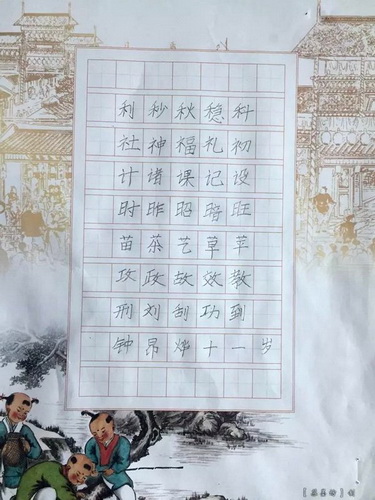 利秒秋稳科
社神福礼初
计诸课记设
时昨昭暗旺
苗茶艺草苹
攻政故效教
刑刘刮功到
钟昂烨十一岁